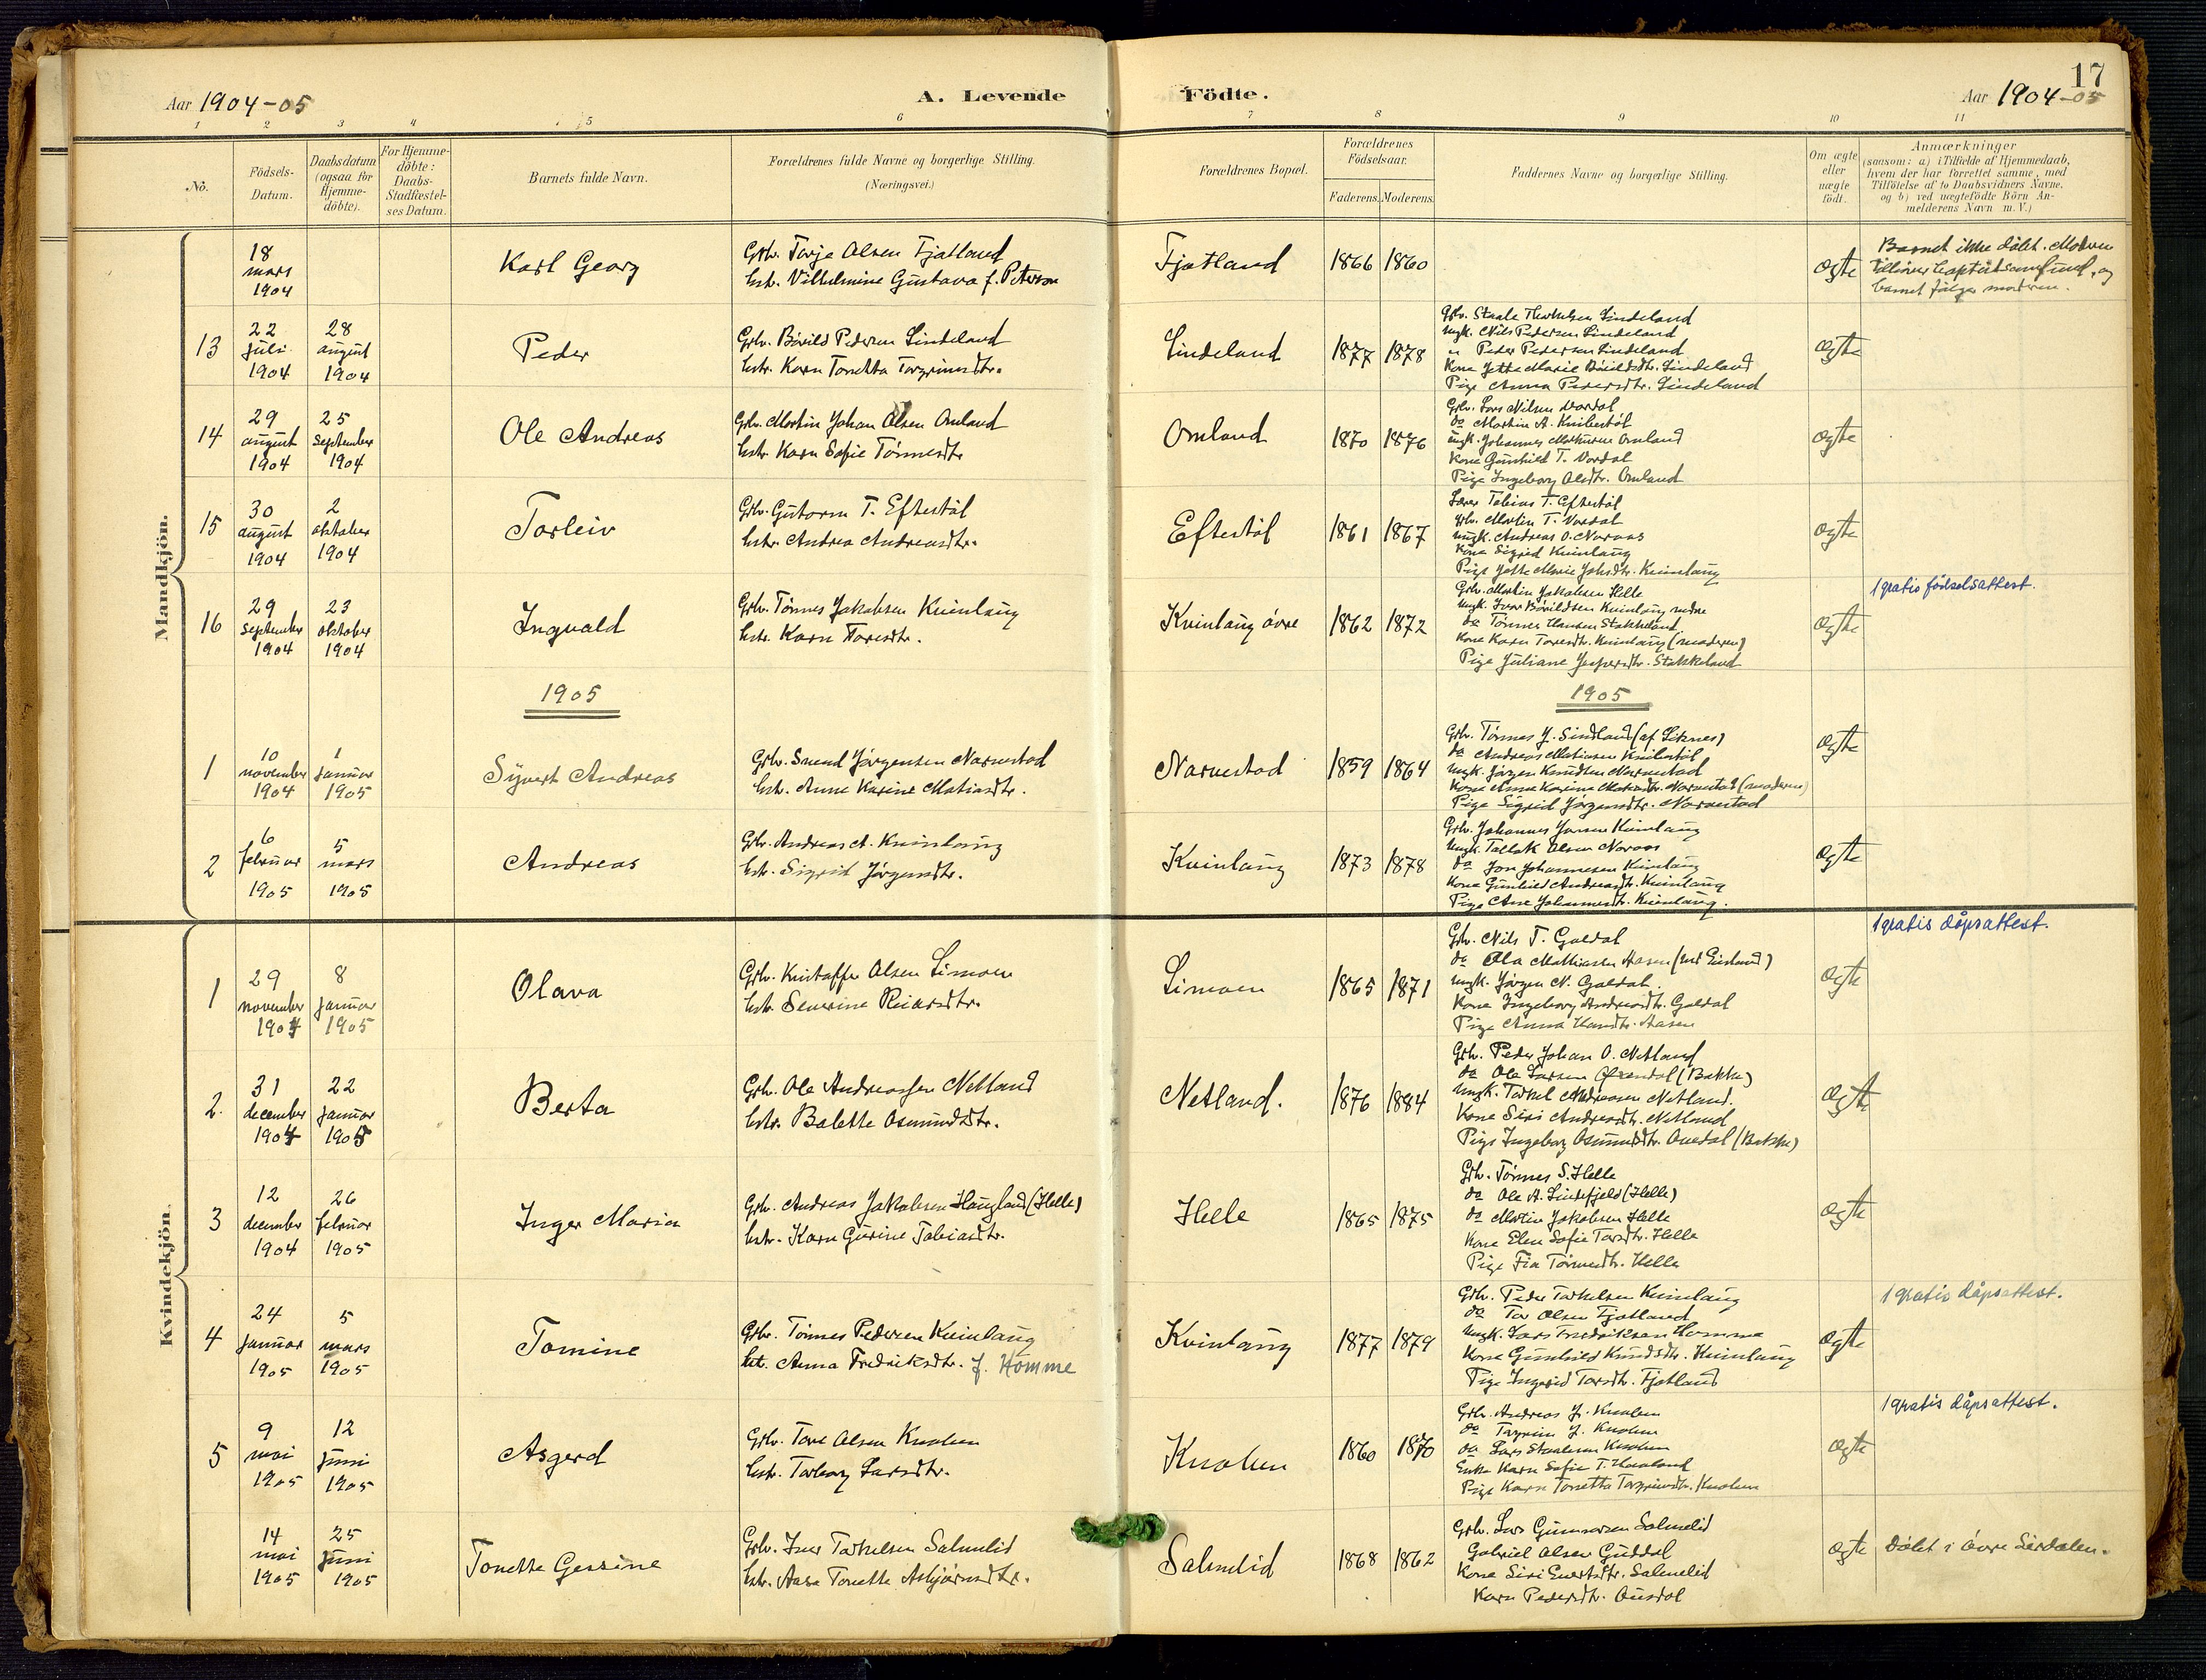 17
Aar 1904-05
A. Levende
Födte.
Aar 1904-05
1 2 3 4 5 6 7 8 9 10 11
No.
Födsels-
Datum.
Daabsdatum
(ogsaa for
Hjemme-
döbte).
For Hjemme-
döbte:
Daabs-
Stadfæstel-
ses Datum.
Barnets fulde Navn.
Forældrenes fulde Navne og borgerlige Stilling.
(Næringsvei.)
Forældrenes Bopæl.
Forældrenes
Födselsaar.
Faderens. Moderens.
Faddernes Navne og borgerlige Stilling.
Om ægte
eller
uægte
födt.
Anmærkninger
(saasom: a) i Tilfælde af Hjemmedaab,
hvem der har forrettet samme, med
Tilföielse af to Daabsvidners Navne.
og b) ved uægtefödte Börn An-
melderens Navn m. V.)
Mandkjön.
18
mars
1904
Karl Georg
Grbr. Terje Olsen Fjotland
hstr. Vilhelmine Gustava f. Peterson
Fjotland
1866 1860
ægte
Barnet ikke döbt. Moderen
tilhörer baptistsamfund, og
barnet fölger moderen.
13
22
juli
1904
28
august
1904
Peder
Grbr. Bårild Pedersen Lindeland
hstr. Karn Tonetta Torgrimsdtr.
Lindeland
1877 1878
Grbr. Staale Lindeland
Ungk. Nils Pedersen Lindeland
" Peder Pedersen Lindeland
Kone Jette Marie Bårildsdtr. Lindeland
Pige Anna Pedersdtr. Lindeland
ægte
14
29
august
1904
25
september
1904
Ole Andreas
Grbr. Martin Johan Olsen Omland
hstr. Karn Sofie Tönnesdtr.
Omland
1870 1876
Grbr. Lars Nilsen Vordal
do Martin A. Knibestöl
ungk. Johannes Omland
Kone Gunhild T. Vordal
Pige Ingeborg Olsdtr. Omland
ægte
15
30
august
1904
2
oktober
1904
Torleiv
Grbr. Gutorm T. Eftestöl
hstr. Andrea Andreasdtr.
Eftestöl
1861 1867
Lærer Tobias T. Eftestöl
Grbr. Martin T. Vordal
Ungk. Andreas O. Noraas
Kone Sigrid Kvinlaug
Pige Jette Marie Kvinlaug
ægte
16
29
september
1904
23
oktober
1904
Ingvald
Grbr. Tönnes Jakobsen Kvinlaug
hstr. Karn Toresdtr.
Kvinlaug övre
1862 1872
Grbr. Martin Jakobsen Helle
Ungk. Iver Bårildsen Kvinlaug nedre
do Tönnes Hansen Stakkeland
Kone Karn Toresdtr. Kvinlaug (moderen)
Pige Juliane Jespersdtr. Stakkeland
ægte
1 gratis födselsattest.
1905
1905
1
10
november
1904
1
januar
1905
Syvert Andreas
Grbr. Svend Jörgensen Narvestad
hstr. Anne Karine Matiasdtr.
Narvestad
1859 1864
Grbr. Tönnes J. Sindland (af Liknes)
do Andreas Matiasen Knibestöl
Ungk. Jörgen Knudsen Narvestad
Kone Anne Karine Matiasdtr. Narvestad (moderen)
Pige Sigrid Jörgensdtr. Narvestad
ægte
2
6
februar
1905
5
mars
1905
Andreas
Grbr. Andreas A. Kvinlaug
hstr. Sigrid Jörgensdtr.
Kvinlaug
1873 1878
Grbr. Johannes Jonsen Kvinlaug
Ungk. Tallak Olsen Noraas
do Jon Johannesen Kvinlaug
Kone Gunhild Andreasdtr. Kvinlaug
Pige Ane Johannesdtr. Kvinlaug.
ægte
Kvindekjön.
1
29
november
1904
8
januar
1905
Olava
Grbr. Kristoffer Olsen Limoen
hstr. Severine Reiarsdtr.
Limoen
1865 1871
Grbr. Nils T. Galdal
do Ola Mathiasen Aasen
Ungk. Jörgen N. Galdal.
Kone Ingeborg Andreasdtr. Galdal
Pige Anna Hansdtr. Aasen
ægte
1 gratis dåpsattest.
2.
31
december
1904
22
januar
1905
Berta
Grbr. Ole Andreassen Netland
hstr. Balette Osmundsdtr.
Netland.
1876 1884
Grbr. Peder Johan O. Netland
do Ole Larsen (Bakke)
Ungk. Torkel Andreasen Netland.
Kone Siri Andreasdtr. Netland
Pige Ingeborg Osmundsdtr. Ouedal (Bakke)
ægte
3
12
december
1904
26
februar
1905
Inger Maria
Grbr. Andreas Jakobsen Haugland (Helle)
hstr. Karn Gurine Tobiasdtr.
Helle
1865 1875
Grbr. Tönnes S. Helle
do Ole A. Lindefjeld (Helle)
do Martin Jakobsen Helle
Kone Elen Sofie Torsdtr. Helle
Pige Fia Tönnesdtr. Helle
ægte
4
24
januar
1905
5
mars
1905
Tomine
Grbr. Tönnes Pedersen Kvinlaug
hst. Anna Fredriksdtr. f. Homme
Kvinlaug
1877 1879
Grbr. Peder Torkelsen Kvinlaug
do Tor Olsen Fjotland
Ungk. Lars Fredriksen Homme
Kone Gunhild Knudsdtr. Kvinlaug
Pige Ingerid Torsdtr. Fjotland
ægte
1 gratis dåpsattest.
5
9
mai
1905
12
juni
1905
Asgerd
Grbr. Tore Olsen Knaben
hstr. Torborg Larsdtr.
Knaben
1860 1870
Grbr. Andreas J. Knaben
do Torgrim J. Knaben
do Lars Staalesen Knaben
Enke Karn Sofie T.
Pige Karn Tonetta Torgrimsdtr. Knaben
ægte
1 gratis dåpsattest.
14
mai
1905
25
juni
1905
Tonette Gessine
Grbr. Iver Torkelsen Salmelid
hstr. Aasa Tonette Asbjörnsdtr.
Salmelid
1868 1862
Grbr. Lars Gunnarsen Salmelid
Gabriel Olsen Guddal
Kone Siri Salmelid
Karn Pedersdtr. Ousdal
ægte
Döbt i övre Sirdalen.